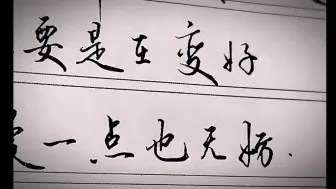 要是在变好
一点也无妨.